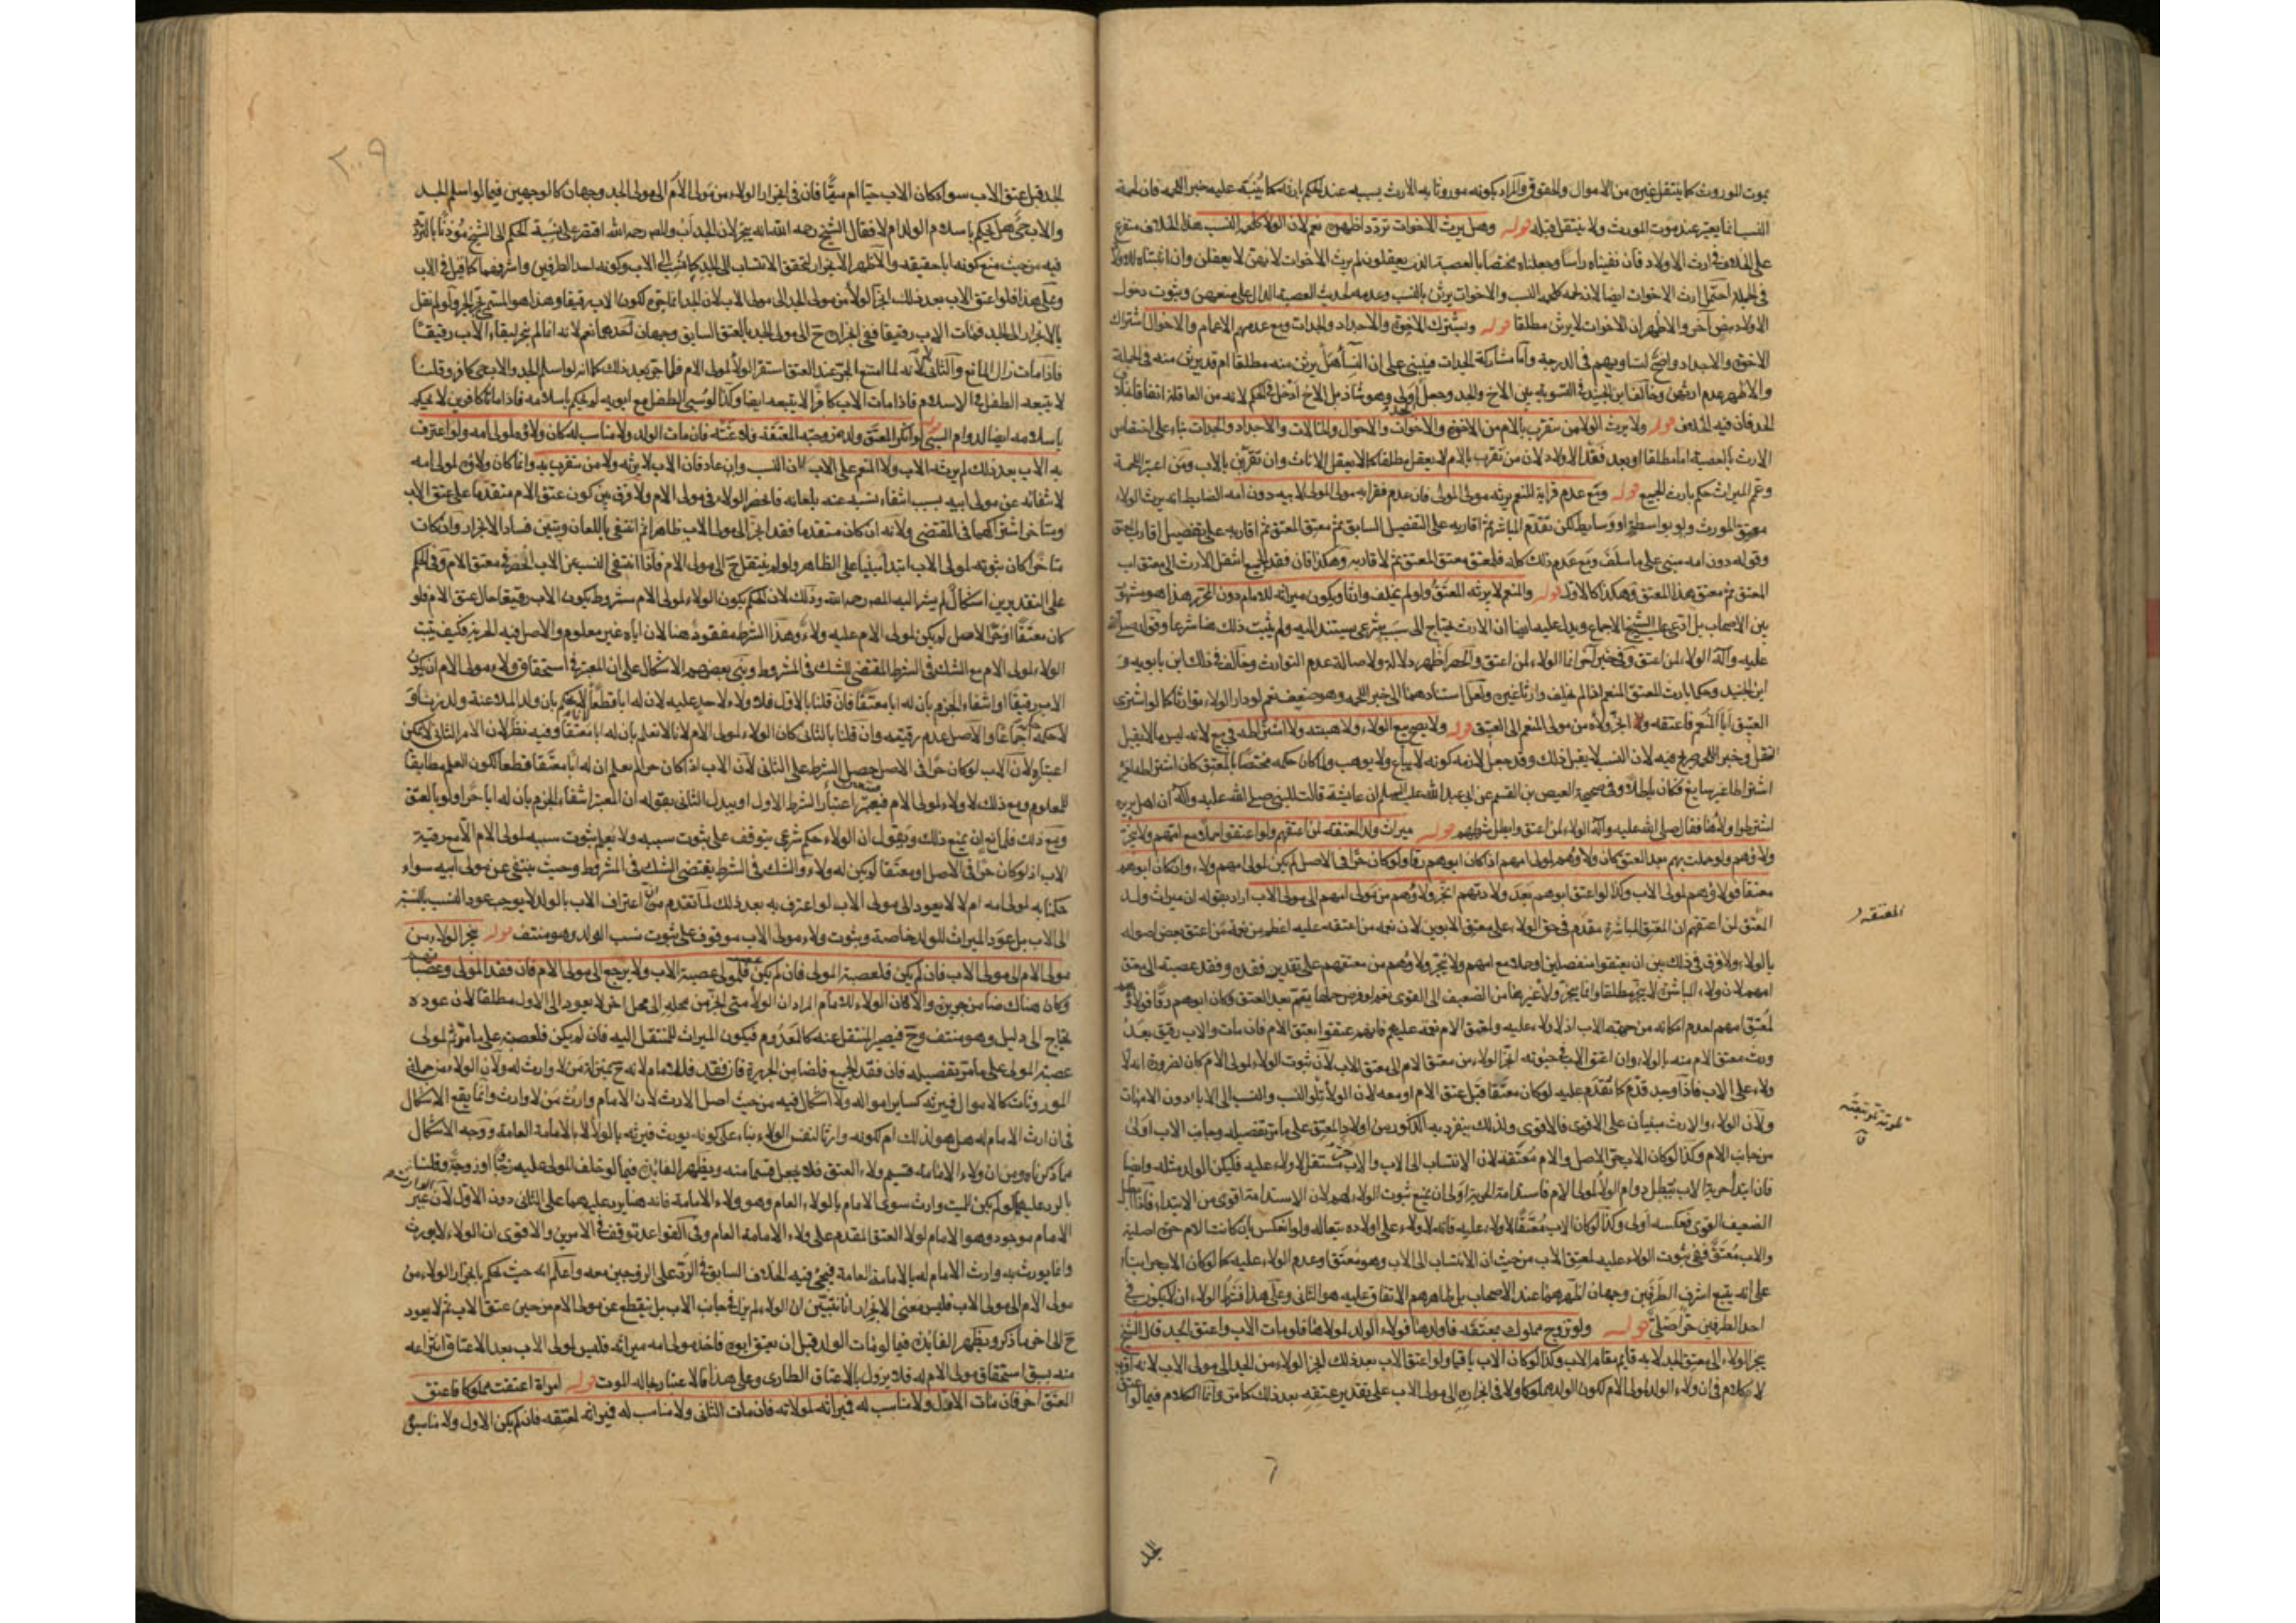 بموت الموروث كما ينتقل غيره من الاموال والحقوق والمراد بكونه موروثا به الارث بسببه عند الحكم بارثه كما ينبّه عليه خبر اللحمة فان لحمة
النسب انما يعتبر عند موت المورث ولا ينتقل قبله قوله وهل يرث الاخوات تردد اظهره نعم لان الولاء كلحمة النسب هذا الخلاف متفرع
على الخلاف في ارث الاولاد فان نفيناه رأسا وجعلناه مختصا بالعصبة الذين يعقلون لم يرث الاخوات لانهن لا يعقلن وان اثبتناه للاولاد
في الجملة احتمل ارث الاخوات ايضا لانه لحمة كلحمة النسب والاخوات يرثن بالنسب وعدمه لحديث العصبة الدال على منعهن وثبوت دخول
الاولاد بنص آخر والاظهر ان الاخوات لا يرثن مطلقا قوله ويشترك الاخوة والاجداد والجدات ومع عدمهم الاعمام والاخوال اشتراك
الاخوة والاجداد واضح لتساويهم في الدرجة وأما مشاركة الجدات فيبنى على ان النسأ هل يرثن منه مطلقا ام قد يرثن منه في الجملة
والاظهر عدم ارثهن وخالف ابن الجنيد في التسوية بين الاخ والجد وجعل اولى وهو شاذ بل الاخ ادخل في الحكم لانه من العاقلة اتفاقا بخلاف
الجد فان فيه الخلاف قوله ولا يرث الولاء من يتقرب بالام من الاخوة والاخوات والاخوال والخالات والاجداد والجدات بناء على اختصاص
الارث بالعصبة اما مطلقا او بعد فقد الاولاد لان من تقرب بالام لا يعقل مطلقا كما لا يعقل الاناث وان تقربن بالاب ومن اعتبر اللحمة
وعمّ الميراث حكم بارث الجميع قوله ومع عدم قرابة المنعم يرثه مولى المولى فان عدم فقرابة مولى المولى لابيه دون امه الضابط انه يرث الولاء
معتق المورث ولو بواسطة او وسايط لكن يقدم المباشر ثم اقاربه على التفصيل السابق ثم معتق المعتق ثم اقاربه على تفصيل اقارب المعتق
وقوله دون امه مبنى على ما سلف ومع عدم ذلك كله فلمعتق معتق المعتق ثم لاقاربه وهكذا فان فقد الجميع انتقل الارث الى معتق اب
المعتق ثم معتق هذا المعتق وهكذا كالاول قوله والمنعم لا يرثه المعتق ولو لم يخلف وارثا ويكون ميراثه للامام دون المحرر هذا هو مشهور
بين الاصحاب بل ادعى عليه الشيخ الاجماع ويدل عليه ايضا ان الارث يحتاج الى سبب شرعي يستند اليه ولم يثبت ذلك هنا شرعا وقوله صلى الله
عليه وآله الولاء لمن اعتق وفي خبر آخر انما الولاء لمن اعتق والحصر اظهر دلالة ولاصالة عدم التوارث وخالف في ذلك ابن بابويه و
ابن الجنيد وحكما بارث المعتق المنعم اذا لم يخلف وارثا غيره ولعل استنادهما الى خبر اللحمة وهو ضعيف نعم لو دار الولاء توارثا كما لو اشترى
العتيق ابا المنعم فاعتقه ولا انجر ولاءه من مولى المنعم الى العتيق قوله ولا يصح بيع الولاء ولا هبته ولا اشتراطه في بيع لانه ليس مما لا يقبل
النقل وخبر اللحمة صريح فيه لان النسب لا يقبل ذلك وقد جعل لازمه كونه لا يباع ولا يوهب ولما كان حكمه مختصا بالمعتق كان اشتراطه لغيره
اشتراطا غير سايغ فكان باطلا وفي صحيحة العيص بن القسم عن ابي عبد الله عليه السلم ان عايشة قالت للنبي صلى الله عليه وآله ان اهل بريرة
اشترطوا ولاءها فقال صلى الله عليه وآله الولاء لمن اعتق وابطل شرطهم قوله ميراث ولد المعتقة لمن اعتقهم ولو اعتقوا حملا مع امهم ولا ينجر
ولاؤهم ولو حملت بهم بعد العتق كان ولاؤهم لمولى امهم اذا كان ابوهم رقا ولو كان حرا في الاصل لم يكن لمولى امهم ولاء وان كان ابوهم
معتقا فولاؤهم لمولى الاب وكذا لو اعتق ابوهم بعد ولادتهم انجر ولاؤهم من مولى امهم الى مولى الاب اراد بقوله ان ميراث ولد
المعتق لمن اعتقهم ان المعتق المباشر مقدم في حق الولاء على معتق الابوين لان نعمة من اعتقه عليه اعظم من نعمة من اعتق بعض اصوله
بالولاء ولا فرق في ذلك بين ان يعتقوا منفصلين او حملا مع امهم ولا ينجر ولاؤهم من معتقهم على تقدير فقده وفقد عصبته الى معتق
امهم لان ولاء المباشرة لا ينجر مطلقا وانما ينجر ولاء غيرها من الضعيف الى القوى نعم لو فرض حملها بهم بعد العتق وكان ابوهم رقا فولاؤهم
لمعتق امهم لعدم امكانه من جهة الاب اذ لا ولاء عليه ولمعتق الام نعمة عليهم فانهم عتقوا بعتق الام فان مات والاب رقيق بعد
ورث معتق الام منه بالولاء وان اعتق الاب في حيوته انجر الولاء من معتق الام الى معتق الاب لان ثبوت الولاء لمولى الام كان لضرورة انه لا
ولاء على الاب فاذا وجد قدّم كما يقدم عليه لو كان معتقا قبل عتق الام او معه لان الولاء تلو النسب والنسب الى الاباء دون الامهات
ولان الولاء والارث مبنيان على الاقوى فالاقوى ولذلك ينفرد به الذكور من اولاد المعتق على ما مر تفصيله وجانب الاب اولى
من جانب الام وكذا لو كان الاب حر الاصل والام معتقة لان الانتساب الى الاب والاب حر مستقل لا ولاء عليه فليكن الولد مثله وايضا
فان ابتداء حرية الاب يبطل دوام الولاء لمولى الام فاستدامة الحرية اولى ان يمنع ثبوت الولاء لهم لان الاستدامة اقوى من الابتداء فاذا ابطل
الضعيف القوى فعكسه اولى وكذا لو كان الاب معتقا لا ولاء عليه فانه لا ولاء على اولاده تبعا له ولو انعكس بان كانت الام حرة اصلية
والاب معتق ففي ثبوت الولاء عليه لمعتق الاب من حيث ان الانتساب الى الاب وهو معتق وعدم الولاء عليه كما لو كان الاب حرا بناء
على انه يتبع اشرف الطرفين وجهان اظهرهما عند الاصحاب بل ظاهرهم الاتفاق عليه هو الثاني وعلى هذا فشرط الولاء ان لا يكون في
احد الطرفين حر اصلي قوله ولو تزوج مملوك بمعتقة فاولدها فولاء الولد لمولاها فلو مات الاب واعتق الجد قال الشيخ
ينجر الولاء الى معتق الجد لانه قايم مقام الاب وكذا لو كان الاب باقيا ولو اعتق الاب بعد ذلك انجر الولاء من الجد الى مولى الاب لانه اقرب
لا كلام في ان ولاء الولد لمولى الام لكون الولد مملوكا ولا في انجراره الى مولى الاب على تقدير عتقه بعد ذلك كما مر وانما الكلام فيما لو اعتق
المعتقة
الجد
٢٠٩
الجد قبل عتق الاب سواء كان الاب حيا ام ميتا فان في انجرار الولاء من مولى الام الى مولى الجد وجهان كالوجهين فيما لو اسلم الجد
والاب حي هل يحكم باسلام الولد ام لا فقال الشيخ رحمه الله انه ينجر لان الجد اب والمص رحمه الله اقتصر على نسبة الحكم الى الشيخ مؤذنا بالتردد
فيه من حيث منع كونه ابا حقيقة والاظهر الانجرار لتحقق الانتساب الى الجد كما ينسب الى الاب وكونه احد الطرفين واشرفهما كما قيل في الاب
وعلى هذا فلو اعتق الاب بعد ذلك انجر الولاء من مولى الجد الى مولى الاب لان الجد انما جره لكون الاب رقيقا وهذا هو المسمى بجر الجر ولو لم نقل
بالانجرار الى الجد فمات الاب رقيقا ففي انجراره ح الى مولى الجد بالعتق السابق وجهان احدهما نعم لانه انما لم ينجر لبقاء الاب رقيقا
فاذا مات زال المانع والثاني لا لانه لما امتنع الجر عند العتق استقر الولاء لمولى الام فلا ينجر بعد ذلك كما انه لو اسلم الجد والاب حي كافر وقلنا
لا يتبعه الطفل في الاسلام فاذا مات الاب كافرا لا يتبعه ايضا وكذا لو سبى الطفل مع ابويه لم يحكم باسلامه فاذا ماتا كافرين لا يحكم
باسلامه ايضا لدوام السبي قوله لو انكر المعتق ولد زوجته المعتقة فلاعنته فان مات الولد ولا مناسب له كان ولاؤه لمولى امه ولو اعترف
به الاب بعد ذلك لم يرثه الاب ولا المنعم على الاب لان النسب وان عاد فان الاب لا يرثه ولا من يتقرب به وانما كان ولاؤه لمولى امه
لانتفائه عن مولى ابيه بسبب انتفاء نسبه عنه بلعانه فانحصر الولاء في مولى الام ولا فرق بين كون عتق الام متقدما على عتق الاب
ومتأخرا لاشتراكهما في المقتضى ولانه ان كان متقدما فقد انجر الى مولى الاب ظاهرا ثم انتفى باللعان وتبين فساد الانجرار وان كان
متأخرا كان ثبوته لمولى الاب ابتداء مبنيا على الظاهر ولو لم ينتقل ح الى مولى الام فاذا انتفى النسب عن الاب انحصر في معتق الام وفي الحكم
على التقديرين اشكال لم يشر اليه المص رحمه الله وذلك لان الحكم بكون الولاء لمولى الام مشروط بكون الاب رقيقا حال عتق الام فلو
كان معتقا او حر الاصل لم يكن لمولى الام عليه ولاء وهذا الشرط مفقود هنا لان اباه غير معلوم والاصل فيه الحرية فكيف يثبت
الولاء لمولى الام مع الشك في الشرط المقتضى للشك في المشروط وبنى بعضهم الاشكال على ان المعتبر في استحقاق ولاء مولى الام ان يكون
الاب رقيقا او انتفاء الجزم بان له ابا معتقا فان قلنا بالاول فلا ولاء لاحد عليه لان له ابا قطعا
لاحكمة اجماعا والاصل عدم رقيته وان قلنا بالثاني كان الولاء لمولى الام لانا لا نعلم بان له ابا معتقا وفيه نظر لان الامر الثاني لا يمكن
اعتباره لان الاب لو كان حرا في الاصل حصل الشرط على الثاني لان الاب اذا كان حرا لم نعلم ان له ابا معتقا قطعا لكون العلم مطابقا
للمعلوم ومع ذلك لا ولاء لمولى الام فيتعين اعتبار الشرط الاول او يبدل الثاني بقوله ان المعتبر انتفاء الجزم بان له ابا حرا ولو بالعتق
ومع ذلك فلمانع ان يمنع ذلك ويقول ان الولاء حكم شرعي يتوقف على ثبوت سببه ولا يعلم ثبوت سببه لمولى الام الا مع رقية
الاب اذ لو كان حرا في الاصل او معتقا لم يكن له ولاء والشك في الشرط يقتضى الشك في المشروط وحيث ينتفى عن مولى ابيه سواء
حكمنا به لمولى امه ام لا لا يعود الى مولى الاب لو اعترف به بعد ذلك لما تقدم من ان اعتراف الاب بالولد لا يوجب عود النسب بالنسبة
الى الاب بل عود الميراث للولد خاصة وثبوت ولاء مولى الاب موقوف على ثبوت نسب الولد وهو منتف قوله ينجر الولاء من
مولى الام الى مولى الاب فان لم يكن فلعصبة المولى فان لم يكن فلمولى عصبة الاب ولا يرجع الى مولى الام فان فقد المولى وعصباتهم
وكان هناك ضامن جريرة والا كان الولاء للامام المراد ان الولاء متى انجر من محله الى محل اخر لا يعود الى الاول مطلقا لان عوده
يحتاج الى دليل وهو منتف وح فيصير المنتقل عنه كالمعدوم فيكون الميراث للمنتقل اليه فان لم يكن فلعصبته على ما مر ثم لمولى
عصبة المولى على ما مر تفصيله فان فقد الجميع فلضامن الجريرة فان فقد فللامام لانه ح بمنزلة من لا وارث له ولان الولاء من جملة
الموروثات كالاموال فيرثه كساير امواله ولا اشكال فيه من حيث اصل الارث لان الامام وارث من لا وارث وانما يقع الاشكال
في ان ارث الامام له هل هو لذلك ام لكونه وارثا لنفس الولاء بناء على كونه يورث فيرثه بالولاء لا بالامامة العامة ووجه الاشكال
مما ذكرناه ومن ان ولاء الامامة قسيم ولاء العتق فلا يجعل قسما منه ويظهر الفايدة فيما لو خلف المولى عليه زوجا او زوجة وقلنا
بالرد عليهما لو لم يكن للميت وارث سوى الامام بالولاء العام وهو ولاء الامامة فانه هنا يرد عليهما على الثاني دون الاول لان غير
الامام موجود وهو الامام لولاء العتق المقدم على ولاء الامامة العام وفي القواعد توقف في الامرين والاقوى ان الولاء لا يورث
وانما يورث به وارث الامام له بالامامة العامة فيجئ فيه الخلاف السابق في الرد على الزوجين معه واعلم انه حيث حكم بانجرار الولاء من
مولى الام الى مولى الاب فليس معنى الانجرار انا نتبين ان الولاء لم يزل في جانب الاب بل ينقطع عن مولى الام من حين عتق الاب ثم لا يعود
ح الى اخر ما ذكر ويظهر الفايدة فيما لو مات الولد قبل ان يعتق ابوه فاخذ مولى امه ميراثه فليس لمولى الاب بعد الاعتاق انتزاعه
منه بسبق استحقاق مولى الام له فلا يزول بالاعتاق الطارى وعلى هذا فالاعتبار بحالة الموت قوله امرأة اعتقت مملوكا فاعتق
المعتق اخر فان مات الاول ولا مناسب له فميراثه لمولاته فان مات الثاني ولا مناسب له فميراثه لمعتقه فان لم يكن الاول ولا مناسبوه